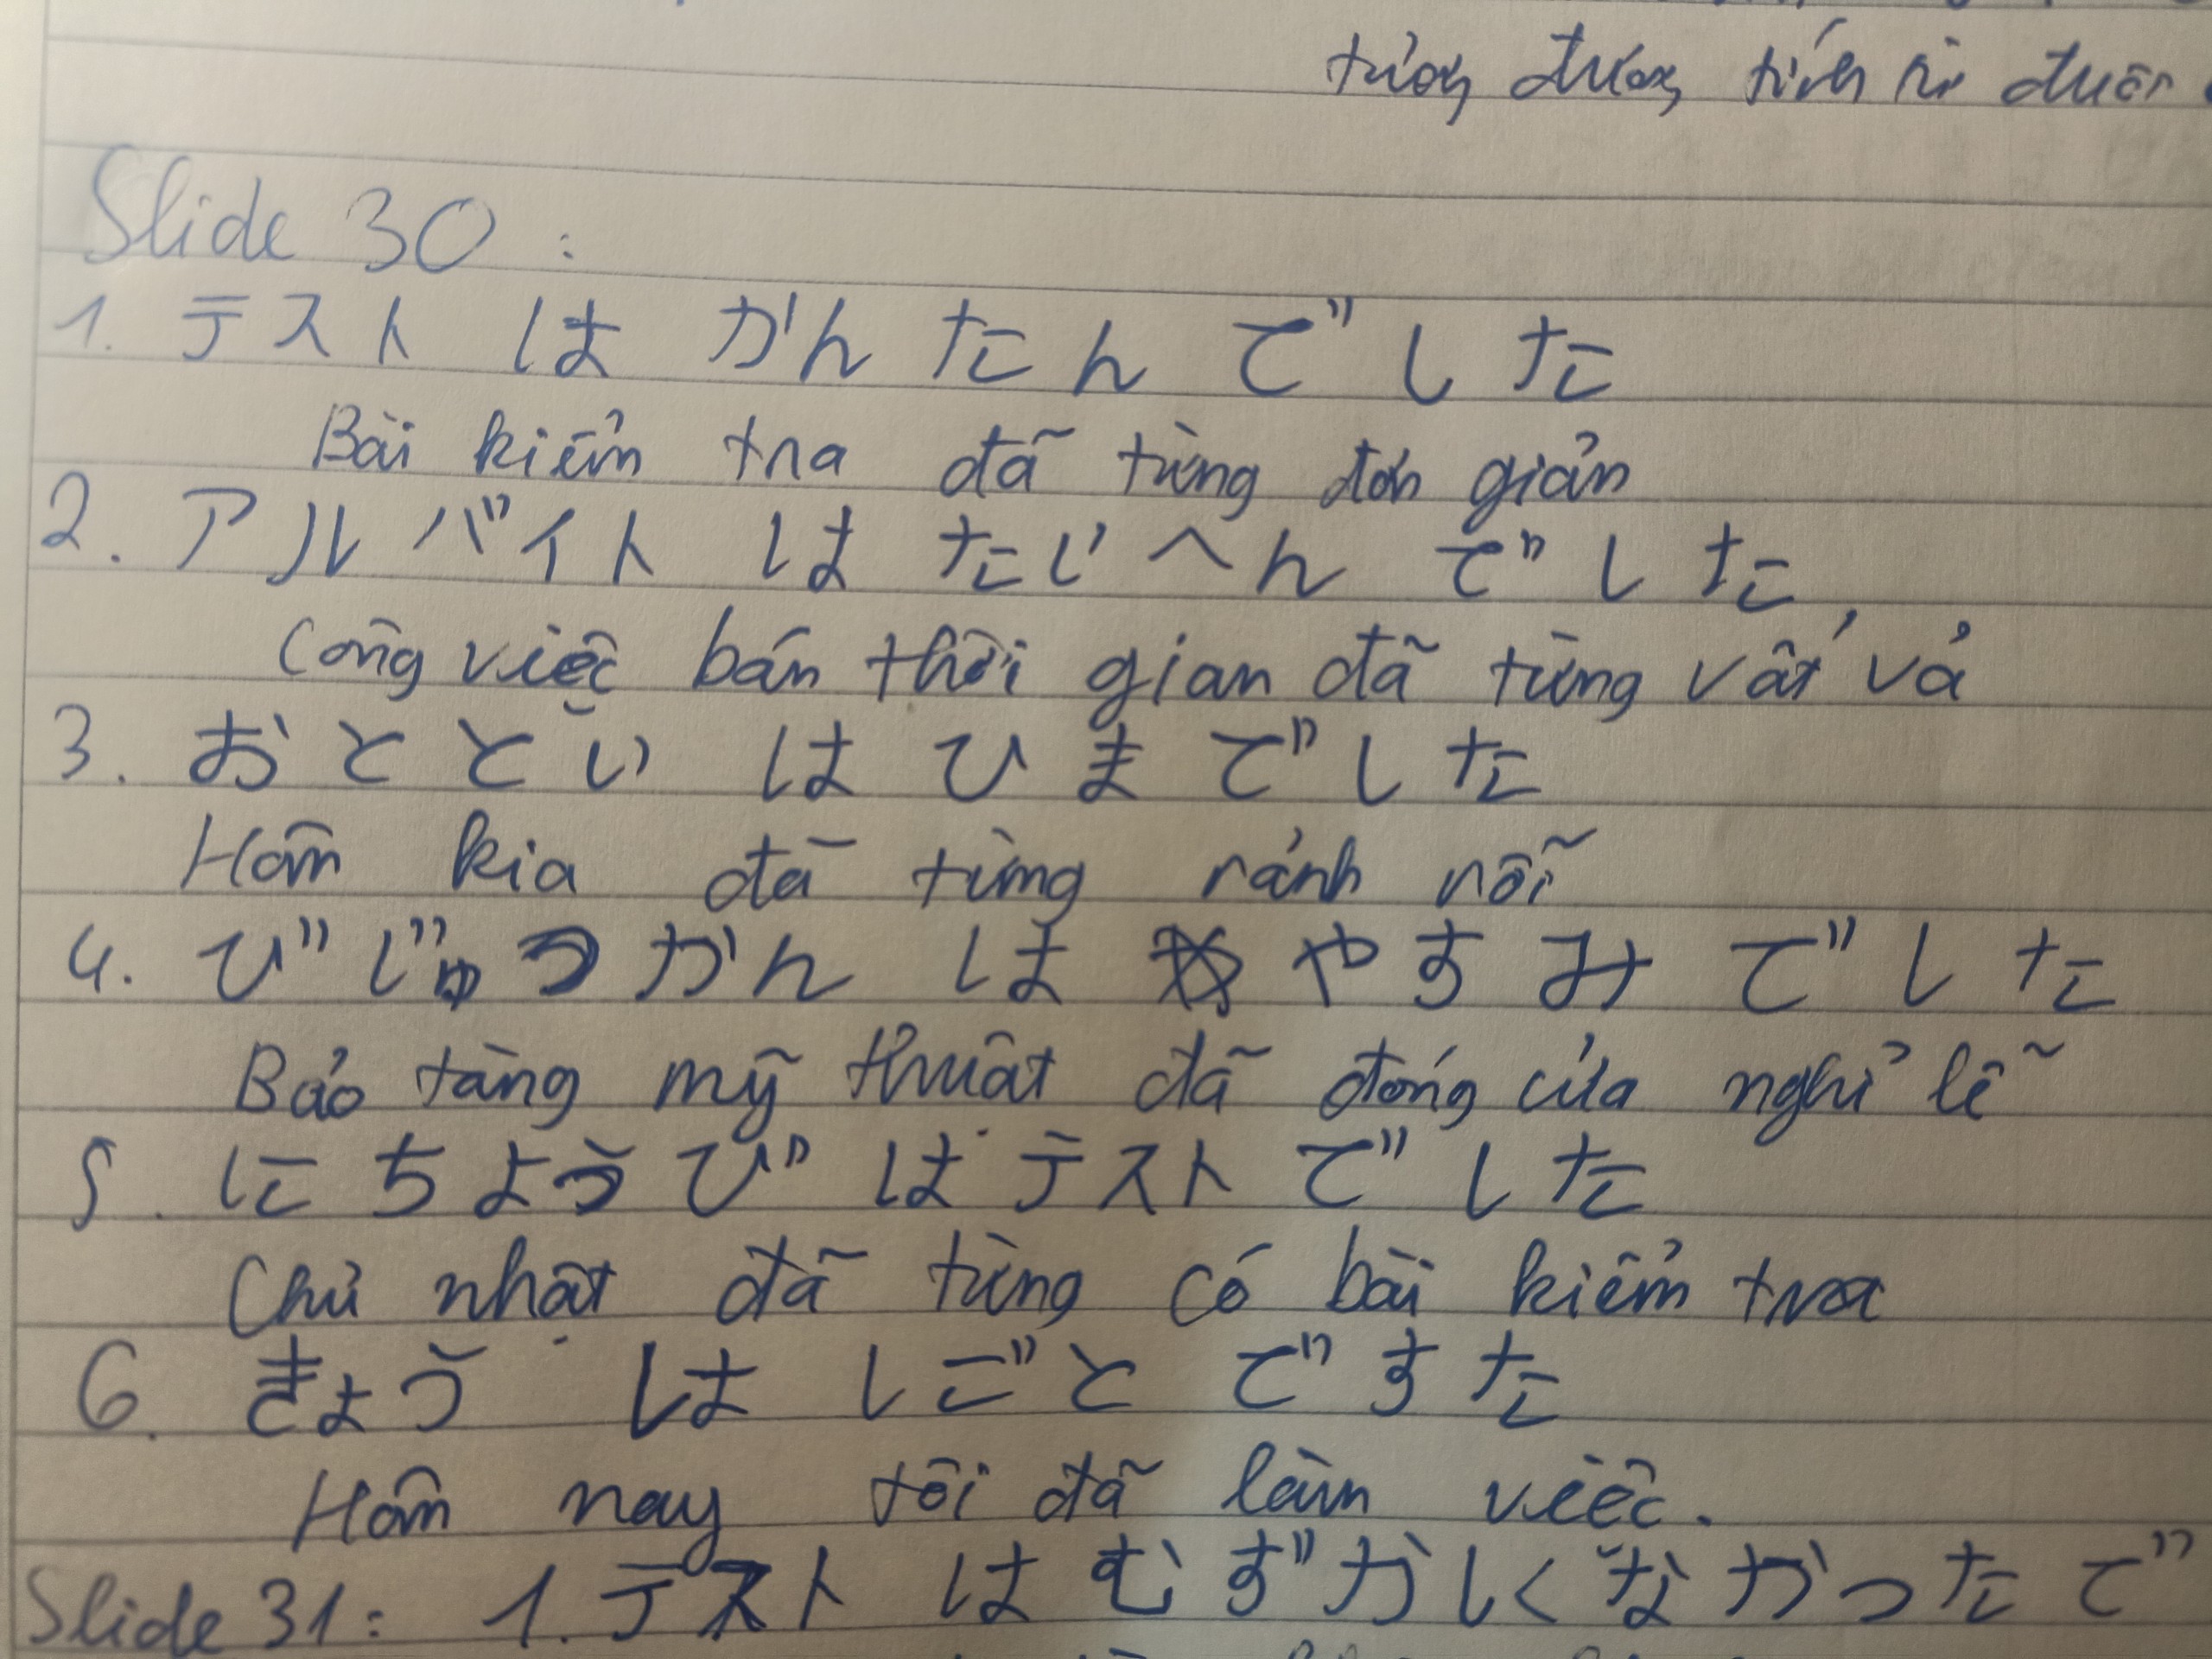 tương đương tính từ đuôi
Slide 30 :
1. テスト は かんたん でした
Bài kiểm tra đã từng đơn giản
2. アルバイト は たいへん でした
Công việc bán thời gian đã từng vất vả
3. おととい は ひまでした
Hôm kia đã từng rảnh rỗi
4. びじゅつかん は やすみでした
Bảo tàng mỹ thuật đã đóng cửa nghỉ lễ
5. にちようび はテストでした
Chủ nhật đã từng có bài kiểm tra
6. きょう は しごと ですた
Hôm nay tôi đã làm việc.
Slide 31: 1. テスト は むずかしくなかったで